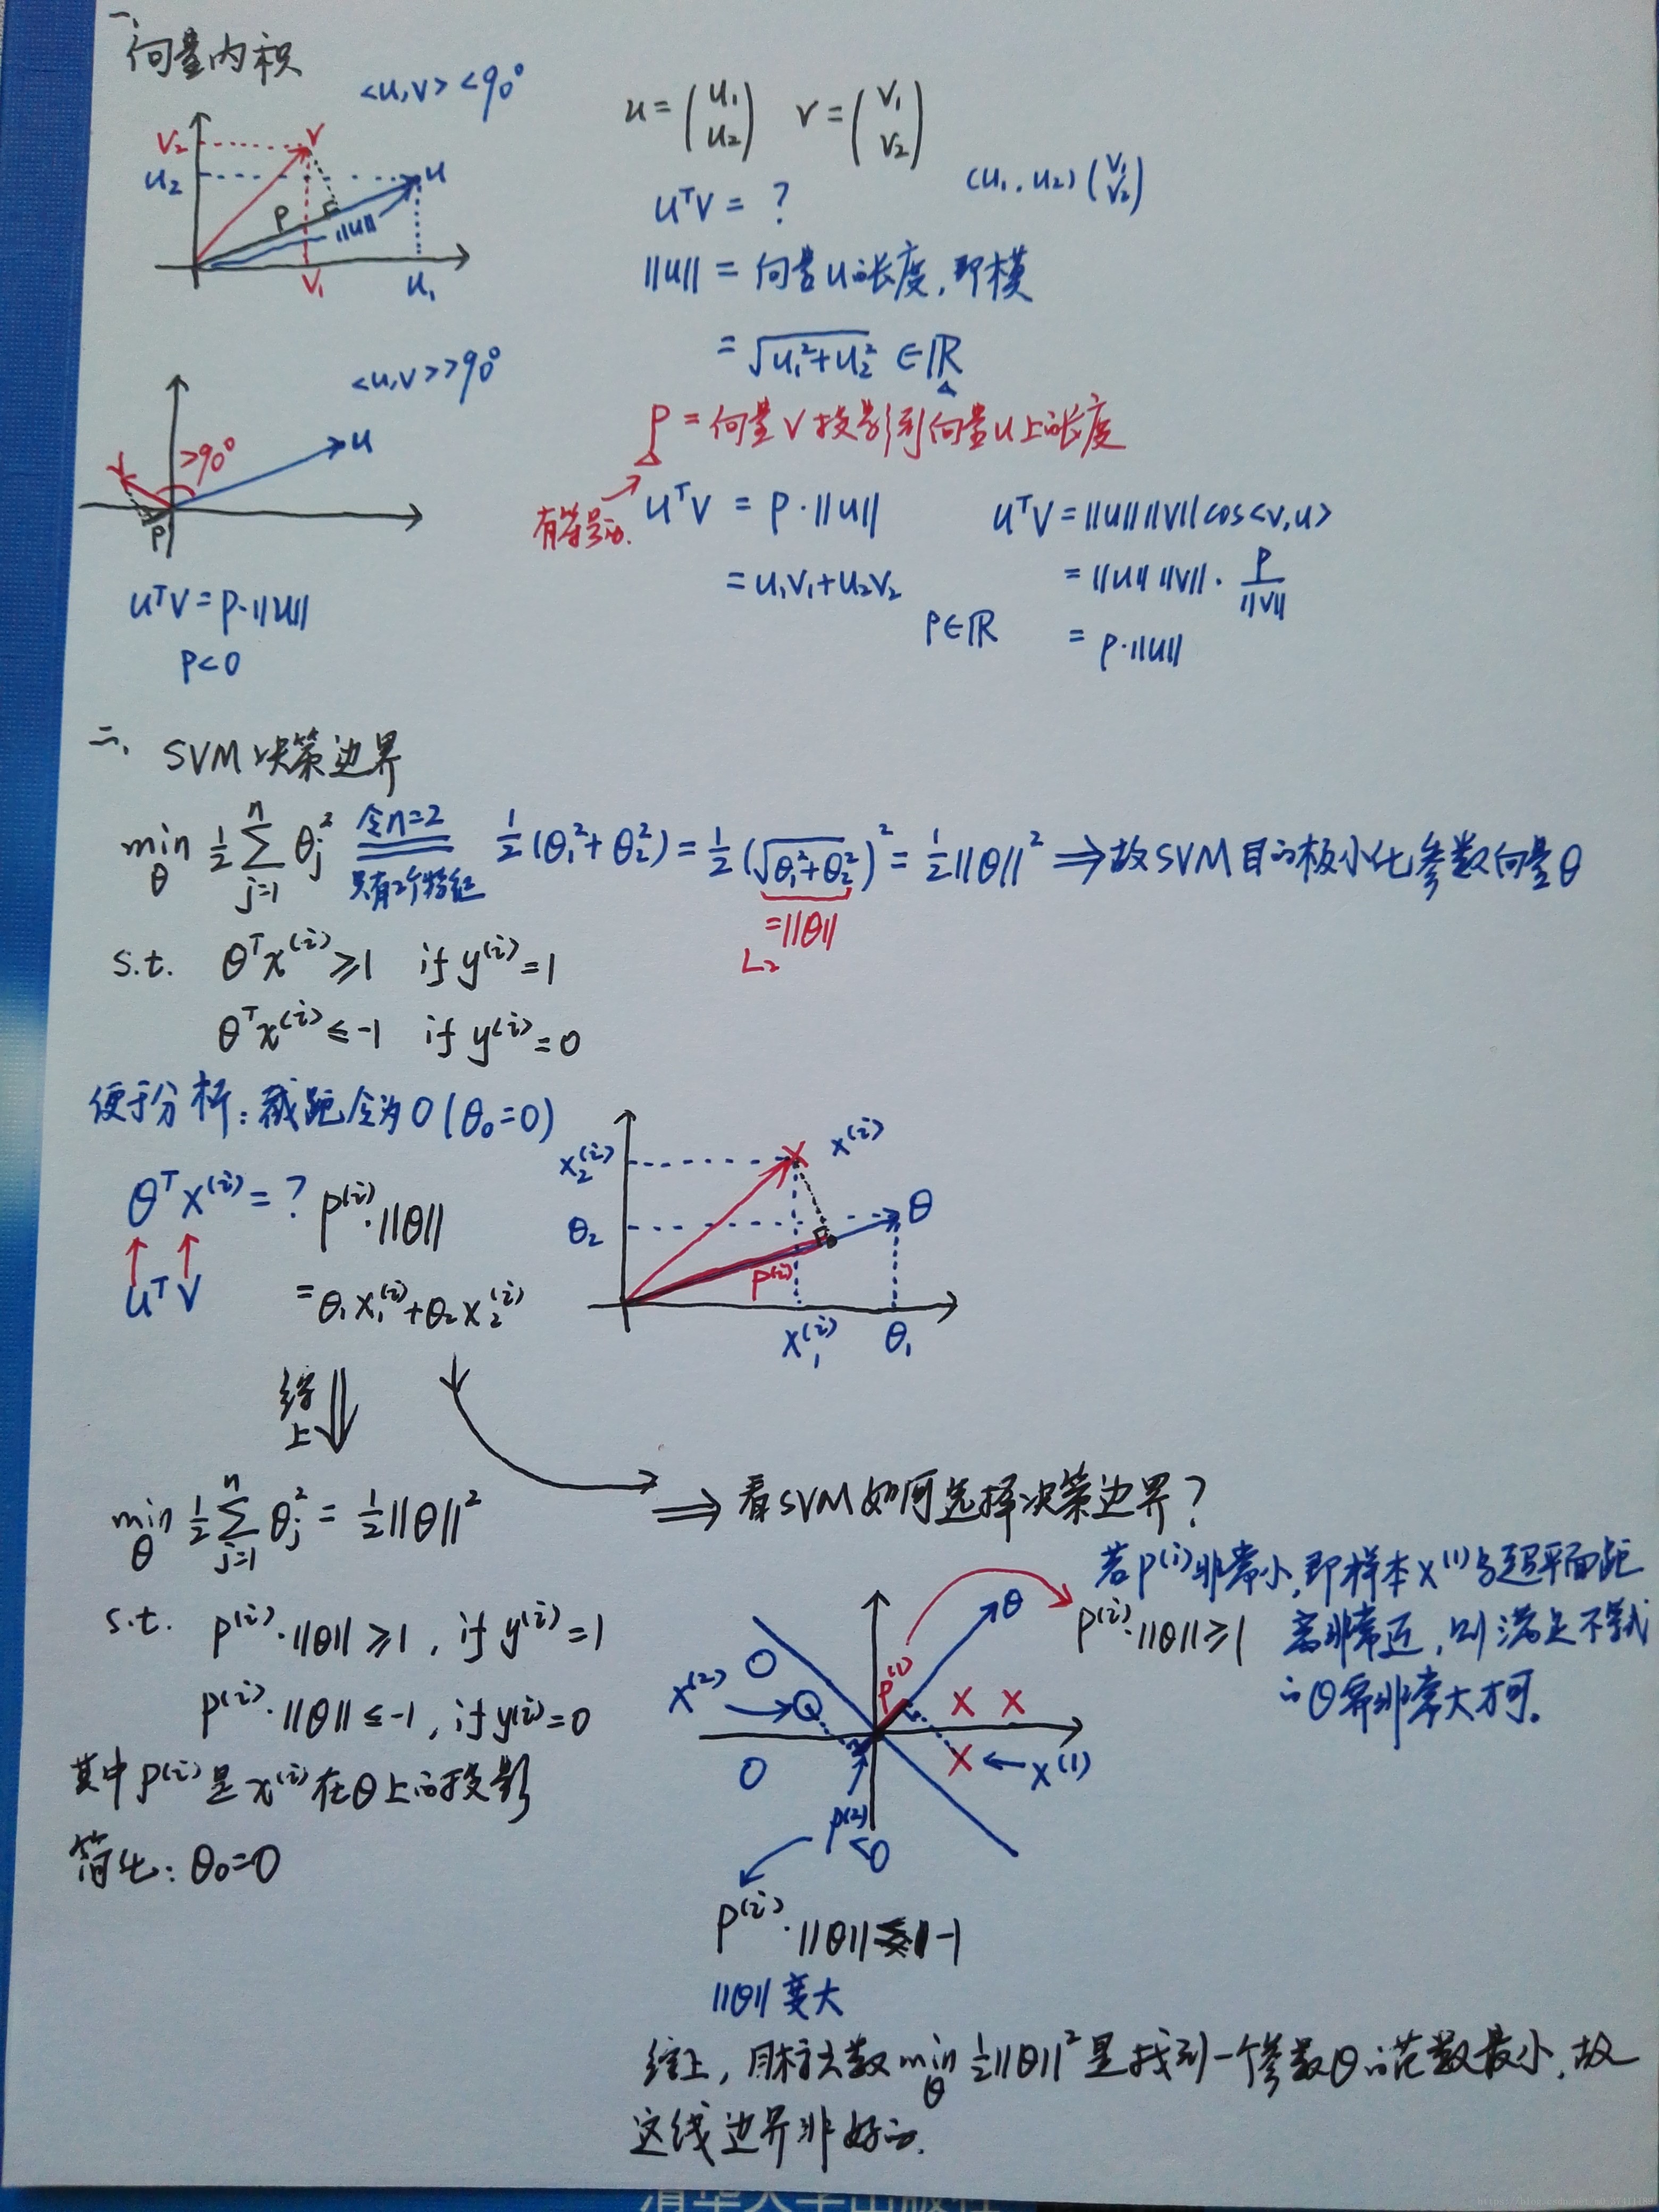 一、向量内积
<u,v> <90°
v₂ v
u₂ u
p ‖u‖
v₁ u₁
u = (u₁ u₂) v = (v₁ v₂)
uᵀv = ? (u₁, u₂)(v₁ v₂)
‖u‖ = 向量u的长度,即模
= √(u₁²+u₂²) ∈ℝ
<u,v> >90°
v >90° u
p
p = 向量v投影到向量u上的长度
有符号的.
uᵀv = p·‖u‖
= u₁v₁+u₂v₂
p∈ℝ
uᵀv = ‖u‖‖v‖cos<v,u>
= ‖u‖‖v‖· p/‖v‖
= p·‖u‖
uᵀv = p·‖u‖
p<0
二、SVM决策边界
min θ ½ ∑ⁿⱼ₌₁ θⱼ² 令n=2 只有2个特征 ½(θ₁²+θ₂²) = ½(√(θ₁²+θ₂²))² = ½‖θ‖² ⇒ 故SVM目的极小化参数向量θ
=‖θ‖
L₂
s.t. θᵀx⁽ⁱ⁾ ≥1 if y⁽ⁱ⁾=1
θᵀx⁽ⁱ⁾ ≤ -1 if y⁽ⁱ⁾=0
便于分析:截距令为0 (θ₀=0)
θᵀx⁽ⁱ⁾ = ? p⁽ⁱ⁾·‖θ‖
uᵀ v
= θ₁x₁⁽ⁱ⁾+θ₂x₂⁽ⁱ⁾
x₂⁽ⁱ⁾ x⁽ⁱ⁾
θ₂ θ
p⁽ⁱ⁾
x₁⁽ⁱ⁾ θ₁
综上
min θ ½ ∑ⁿⱼ₌₁ θⱼ² = ½‖θ‖²
⇒ 看SVM如何选择决策边界?
s.t. p⁽ⁱ⁾·‖θ‖ ≥1, if y⁽ⁱ⁾=1
p⁽ⁱ⁾·‖θ‖ ≤ -1, if y⁽ⁱ⁾=0
其中p⁽ⁱ⁾是x⁽ⁱ⁾在θ上的投影
简化:θ₀=0
θ
p⁽¹⁾
x⁽²⁾
x⁽¹⁾
p⁽²⁾ <0
p⁽ⁱ⁾·‖θ‖≥1
若p⁽ⁱ⁾非常小,即样本x⁽¹⁾与超平面距
离非常近,则满足不等式
的θ需非常大才可。
p⁽ⁱ⁾·‖θ‖ ≤ -1
‖θ‖变大
综上,目标函数 min θ ½‖θ‖² 是找到一个参数θ的范数最小,故
这线边界非好的.
清华大学出版社